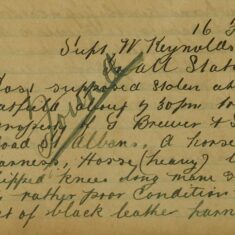 16
Supt. W Reynolds
all Stat
supposed stolen
atfield about 9 30pm
roperty G Brewer &
oad St Albans, A horse
arness, Horse (heavy)
ipped knees long mane &
rather poor Condition
et of black leather harn
Found